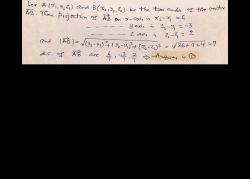 Let A(x₁,y₁,z₁) and B(x₂,y₂,z₂) be the two ends of the vector
AB. Then projection of AB on x-axis = x₂-x₁ = 6
y axis = y₂-y₁ = -3
z axis = z₂-z₁ = 2
and |AB| = √(x₂-x₁)²+(y₂-y₁)²+(z₂-z₁)² = √36+9+4 = 7
d.c. of AB are 6/7, -3/7, 2/7 ⇒ Answer is